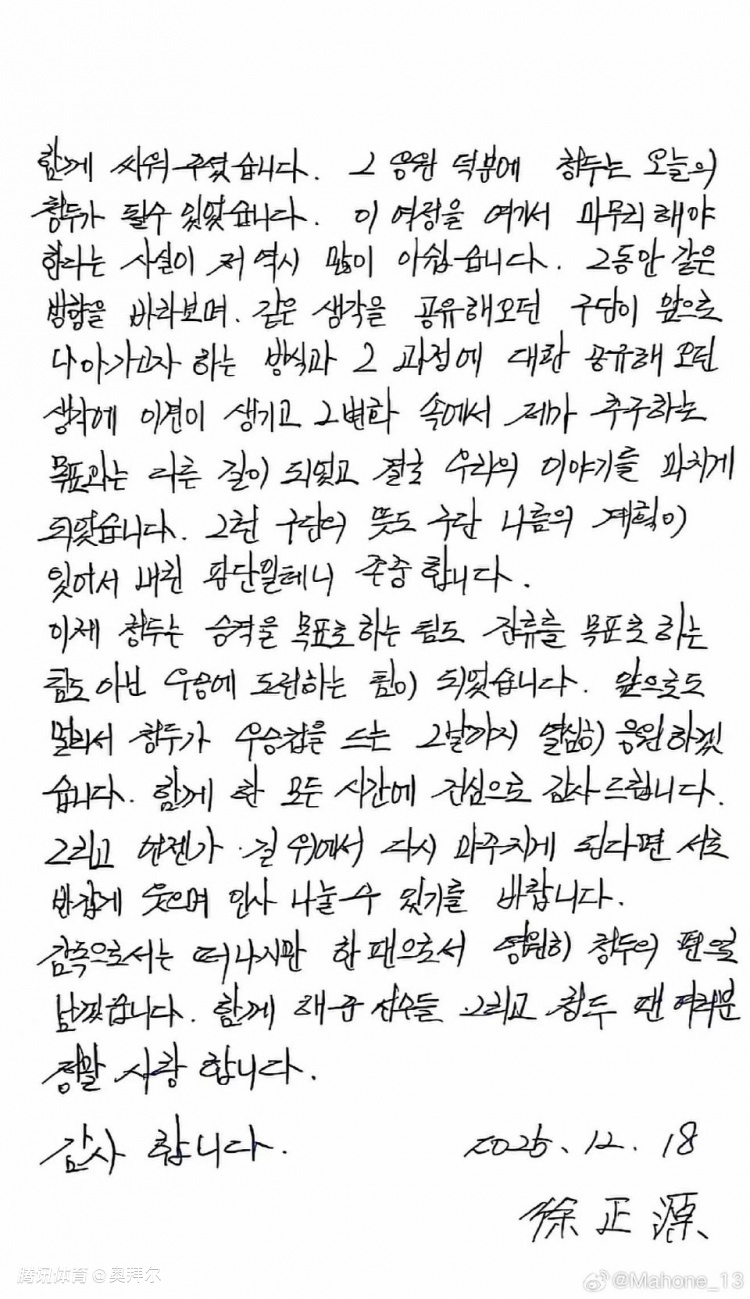 함께 싸워 주셨습니다. 그 응원 덕분에 청두는 오늘의
청두가 될수 있었습니다. 이 여정을 여기서 마무리해야
한다는 사실이 저 역시 많이 아쉽습니다. 그동안 같은
방향을 바라보며. 같은 생각을 공유해오던 구단이 앞으로
나아가고자 하는 방식과 그 과정에 대한 공유해 오던
생각에 이견이 생기고 그변화 속에서 제가 추구하는
목표와는 다른 길이 되었고 결국 우리의 이야기를 마치게
되었습니다. 그런 구단의 뜻도 구단 나름의 계획이
있어서 내린 판단일테니 존중 합니다.
이제 청두는 승격을 목표로 하는 팀도 잔류를 목표로 하는
팀도 아닌 우승에 도전하는 팀이 되었습니다. 앞으로도
멀리서 청두가 우승컵을 드는 그날까지 열심히 응원하겠
습니다. 함께 한 모든 시간에 진심으로 감사드립니다.
그리고 언젠가 길 위에서 다시 마주치게 된다면 서로
반갑게 웃으며 인사 나눌수 있기를 바랍니다.
감독으로서는 떠나지만 한 팬으로서 영원히 청두의 편으로
남겠습니다. 함께 해준 선수들 그리고 청두 팬 여러분
정말 사랑 합니다.
감사 합니다. 2025. 12. 18
徐正源
腾讯体育 @奥拜尔
@Mahone_13